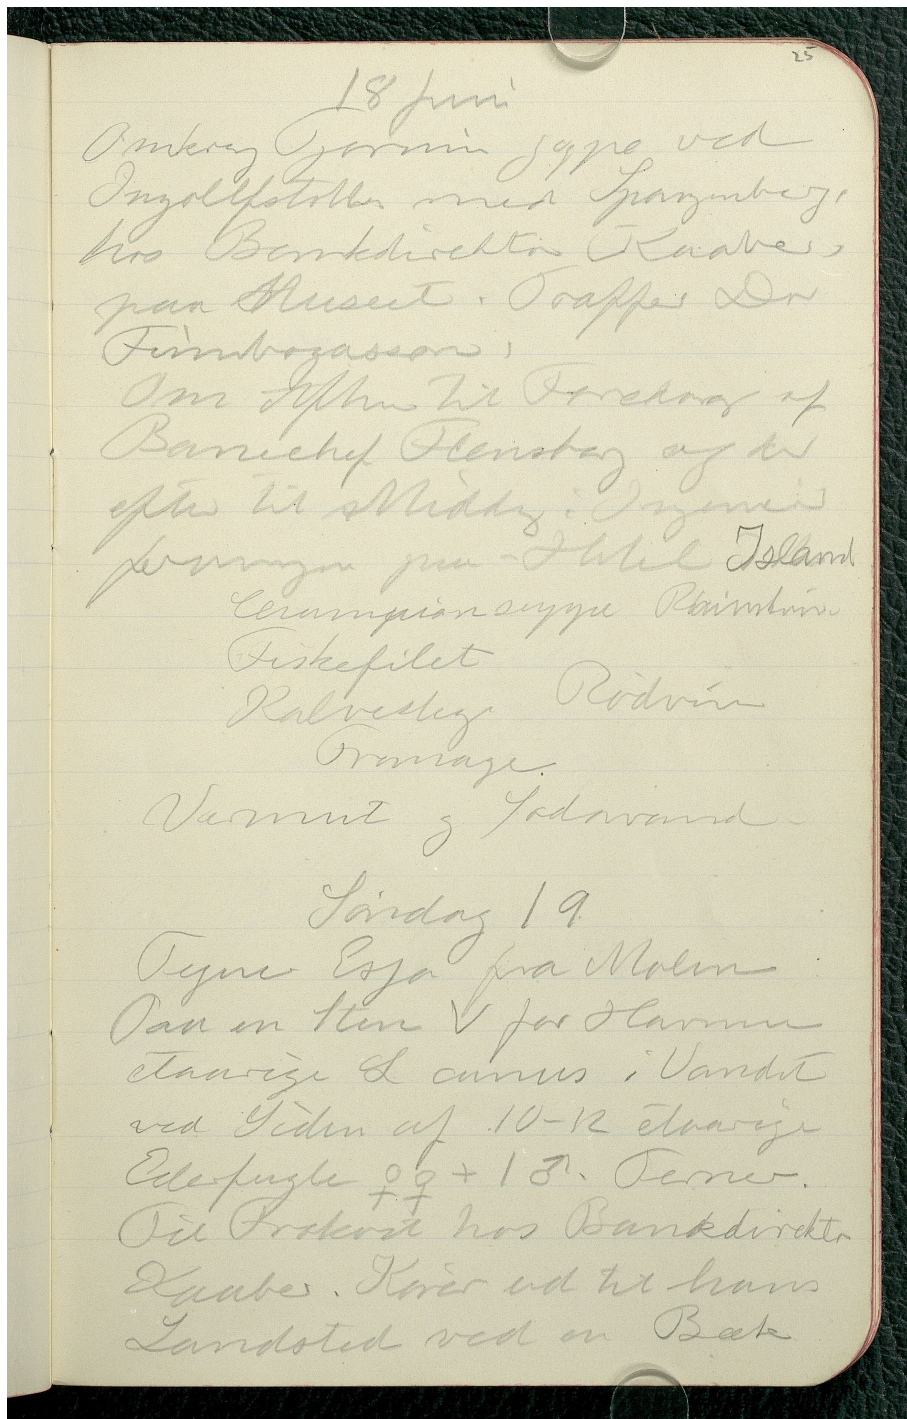 25
18 Juni
Omkring Tjornin oppe ved
Ingolffstotten med Spangenberg,
hos Bankdirektør Kaaber,
paa Museet. Træffer Dr
Finnbogasson.
Om Aften til Foredrag af
Banechef Flensborg og der
efter til Middag i Ingeniør
foreningen paa Hotel Island
Champion suppe Rhinskvin
Fiskefilet
Kalvesteg Rødvin
Fromage
Vermut og Sodavand
Søndag 19
Tegner Esja fra Molen
Paa en Sten V for Havnen
etaarige L canus i Vandet
ved Siden af 10-12 etaarige
Ederfugle ♀♀ + 1 ♂. Terner.
Til Frokost hos Bankdirektør
Kaaber. Kører ud til hans
Landsted ved en Bæk